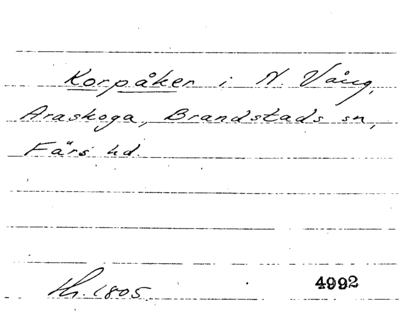 Korpåker i N. Vång,
Araskoga, Brandstads sn,
Färs hd.
th. 1805. 4992